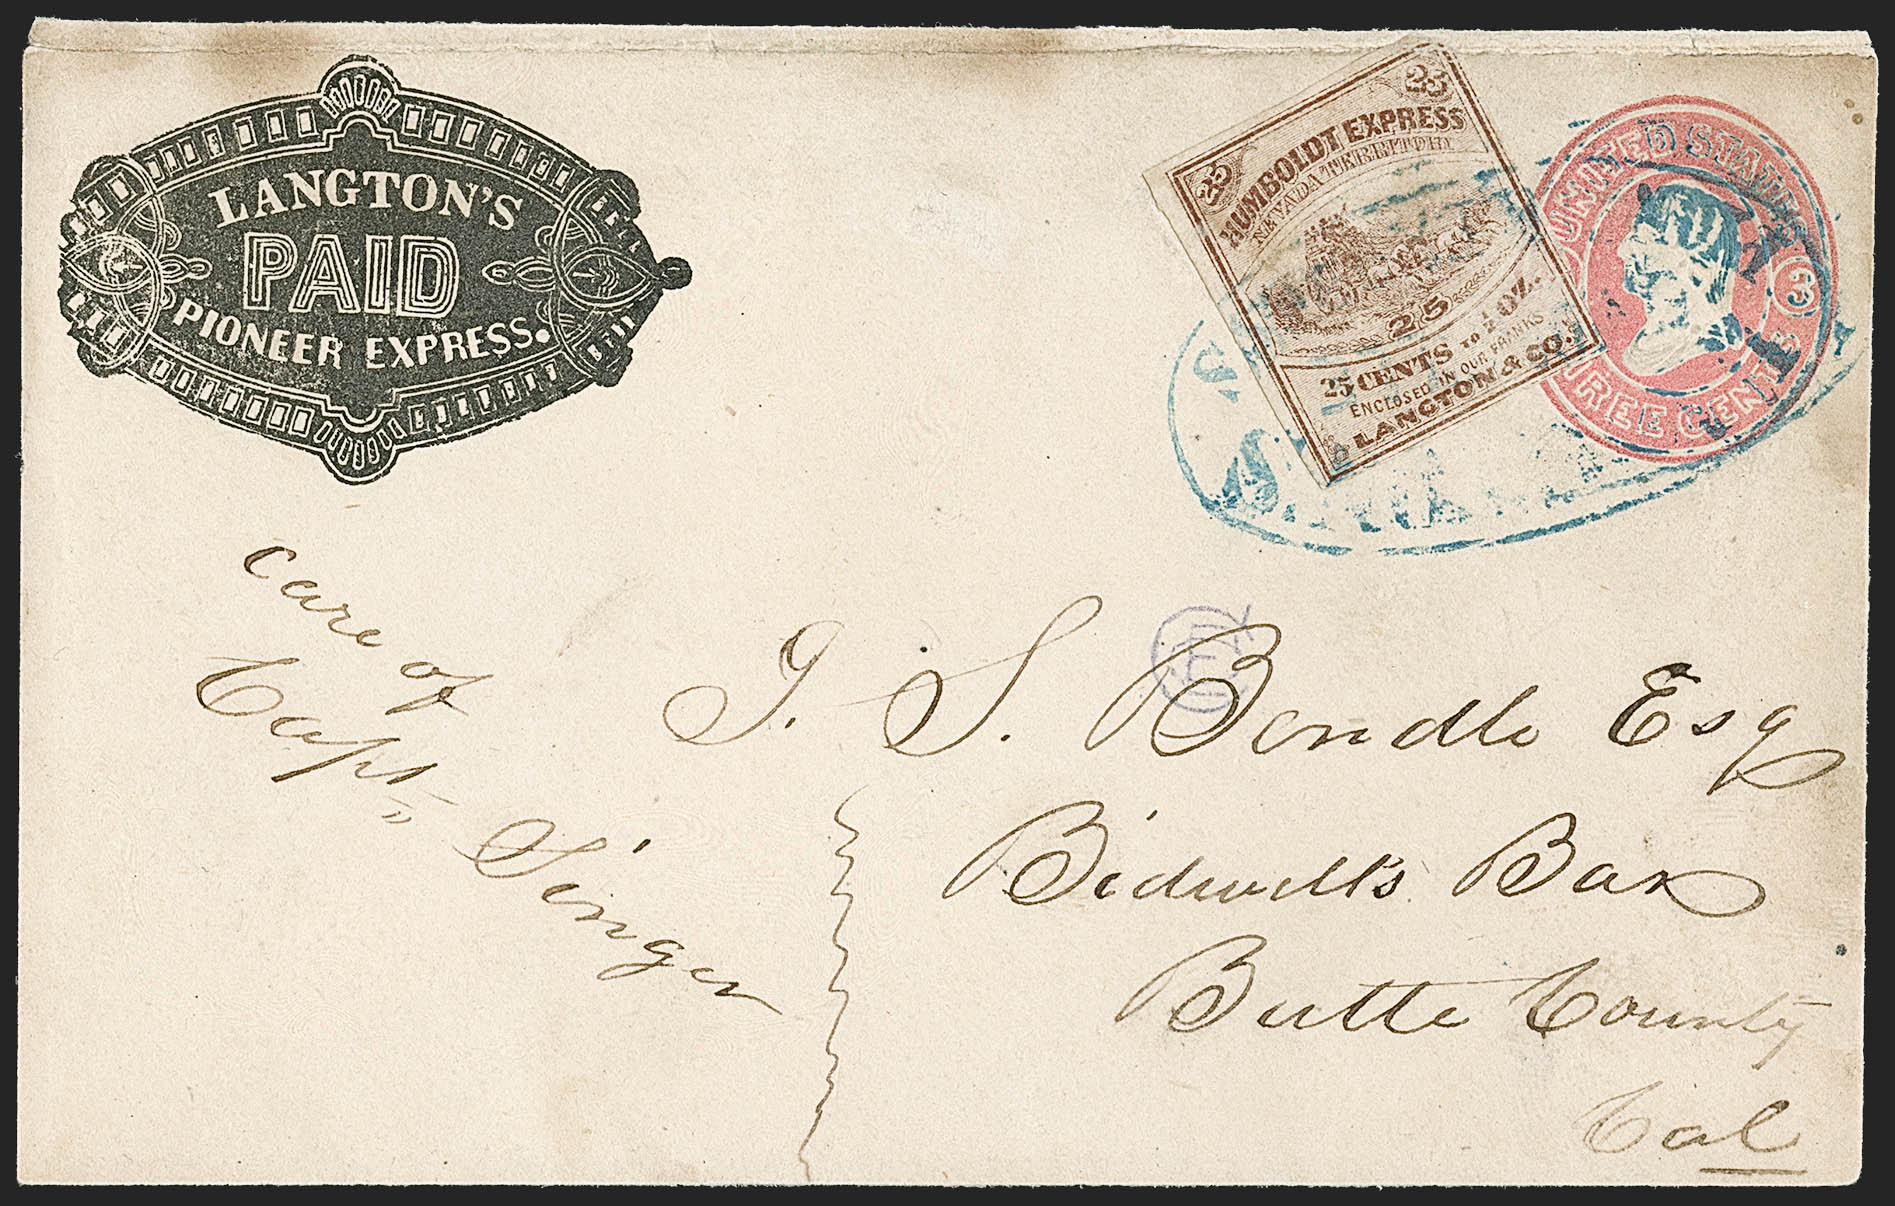 LANGTON'S
PAID
PIONEER EXPRESS.
25
25
HUMBOLDT EXPRESS
NEVADA TERRITORY
25
25 CENTS TO ½ OZ.
ENCLOSED IN OUR FRANKS
LANGTON & CO.
UNITED STATES
3
THREE CENTS
care of
Capt
Singer
J. S. Bendle Esq
Bidwell's Bar
Butte County
Cal